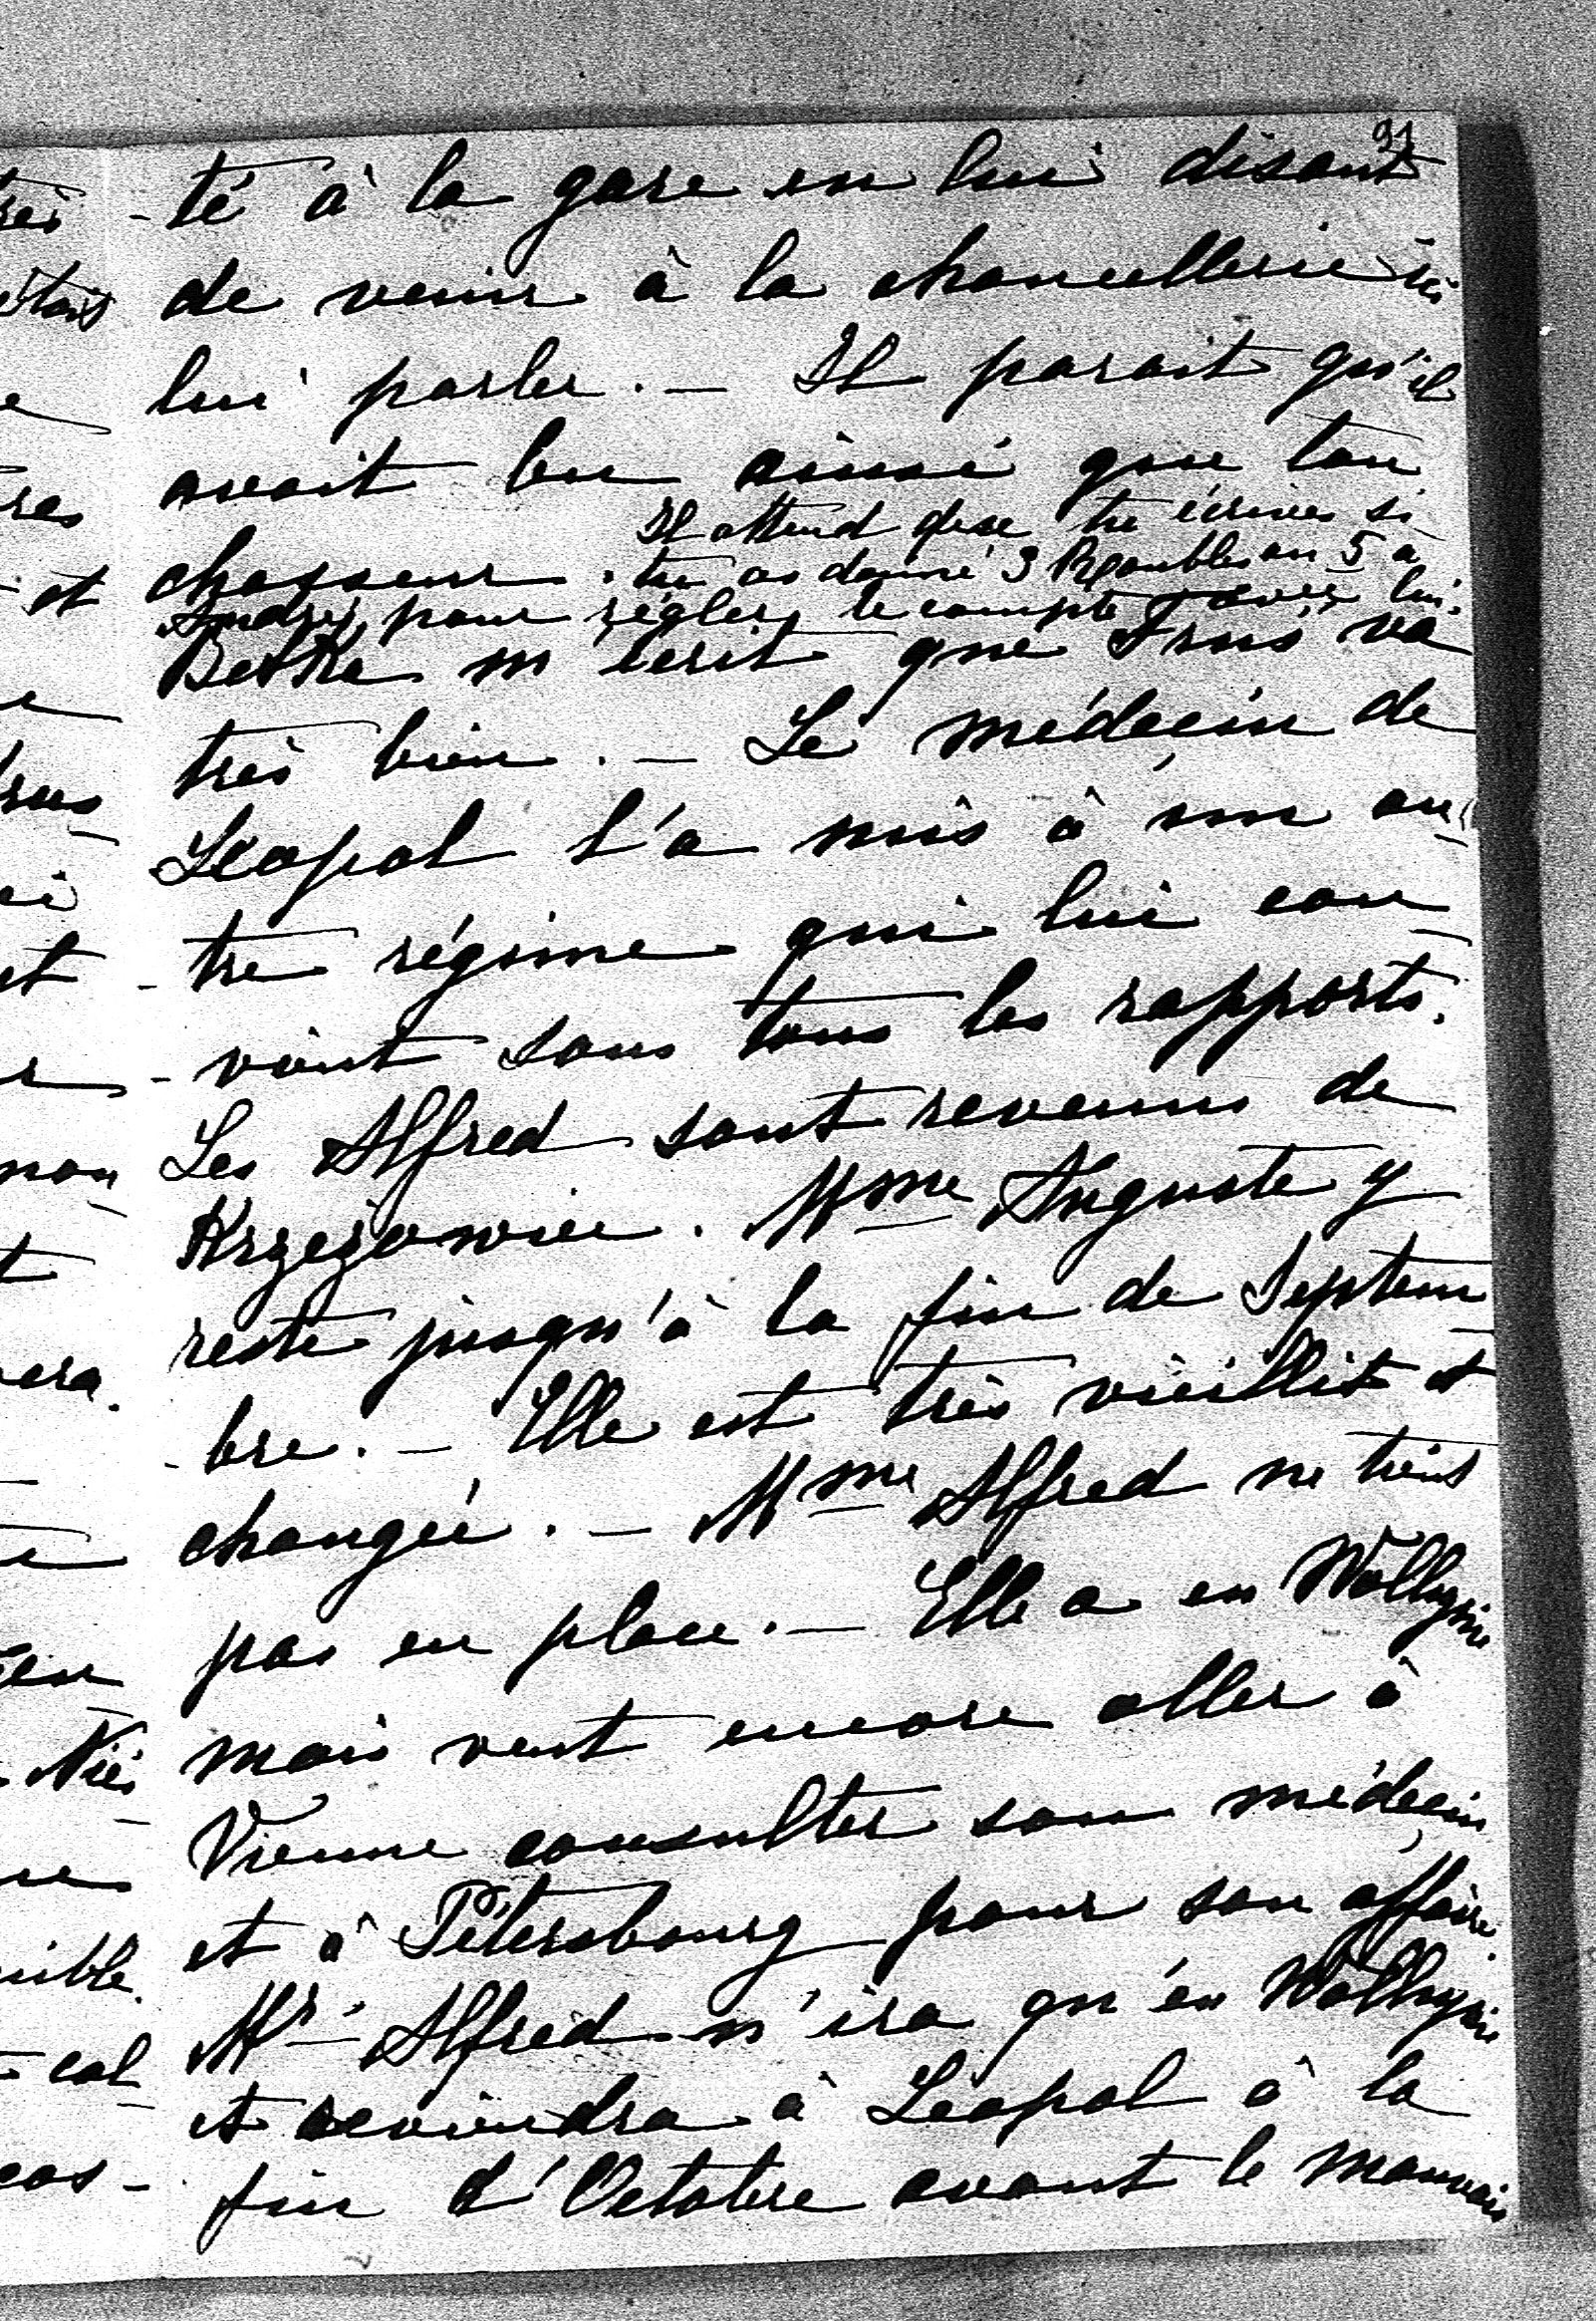 91
-té à la gare en lui disant
de venir à la chancellerie ici
lui parler. — Il parait qu'il
avait bu ainsi que ton
chasseur. Il attend que tu écrives si
tu as donné 3 Rgoubles ou 5 a
Andrej pour régler le compte avec lui.
Betka m'écrit que Trus va
très bien. — Le médecin de
Léopol l'a mis à un au
-tre régime qui lui con
-vient sous tous les rapports.
Les Alfred sont revenus de
Krzeżowice. Mme Auguste y
reste jusqu'à la fin de Septem
-bre. — Elle est très vieillit et
changée. — Mme Alfred ne tient
pas en place. — Elle a en Wolhynie
mais veut encore aller à
Vienne consulter son médecin
et à Pétersbourg pour son affaire.
Mr Alfred n'ira qu'en Wolhynie
et reviendra à Léopol à la
fin d'Octobre avant le mauvais